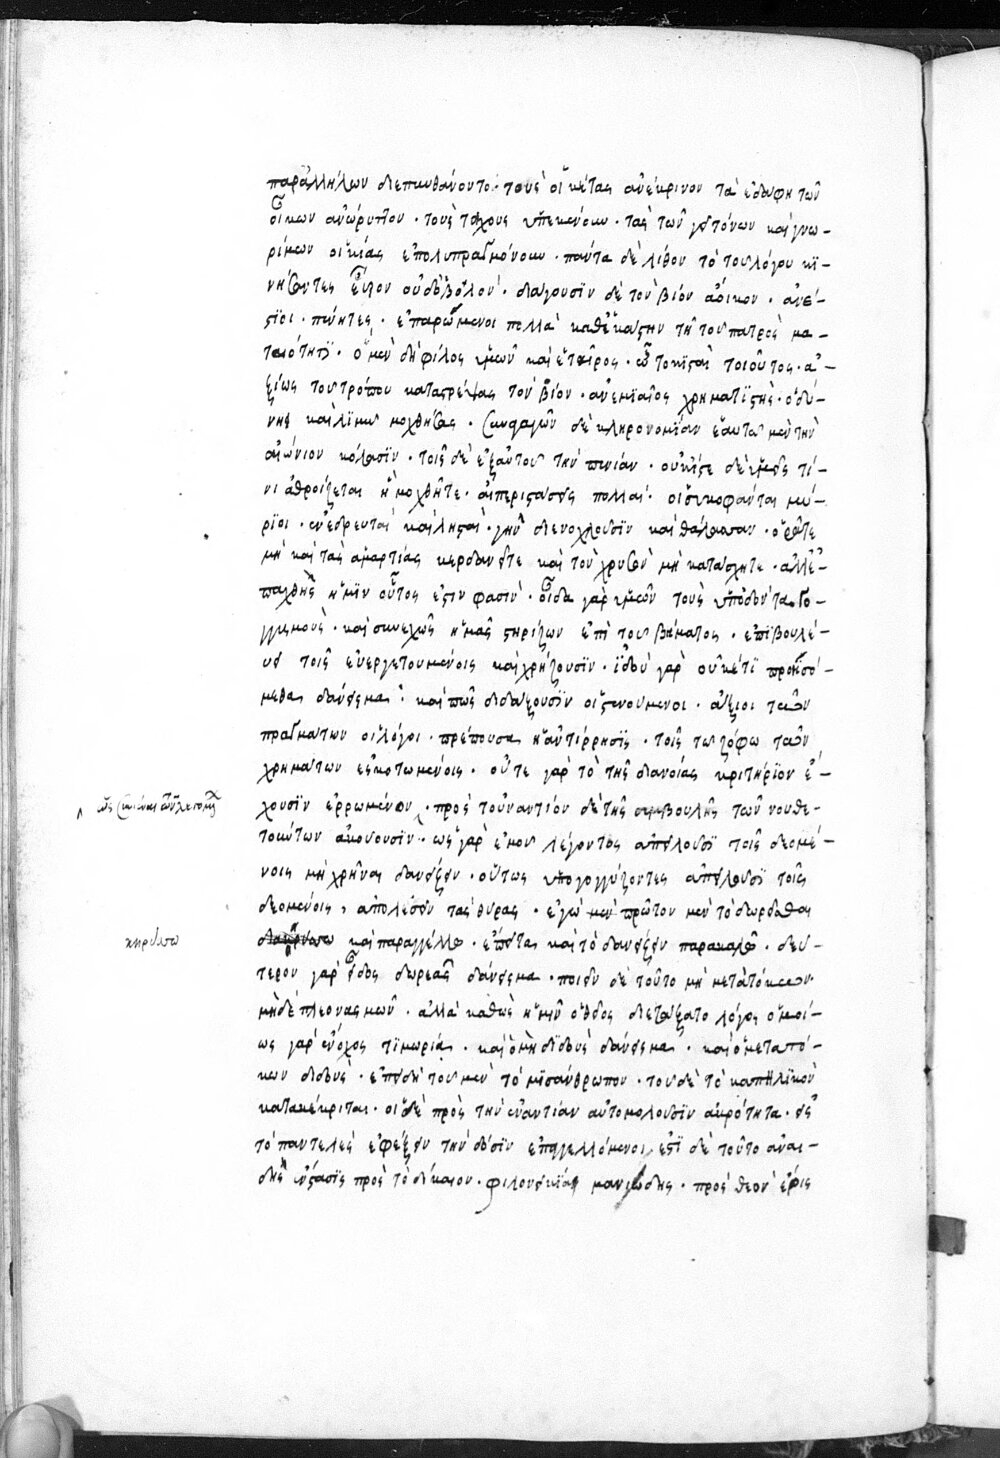 παρ' ἀλλήλων διεπυνθάνοντο· τοὺς οἰκέτας ἀνέκρινον τὰ ἐδάφη τῶν
οἴκων ἀνώρυττον· τοὺς τοίχους ὑπεκένουν· τὰς τῶν γειτόνων καὶ γνω-
ρίμων οἰκίας ἐπολυπραγμόνουν· πάντα δὲ λίθον τὸ τοῦ λόγου κι-
νήσαντες εὗρον οὐδ' ὀβολόν· διάγουσιν δὲ τὸν βίον ἄοικοι· ἀνέ-
στιοι· πένητες· ἐπαρώμενοι πολλὰ καθ' ἑκάστην τῇ τοῦ πατρὸς μα-
ταιότητι· ὁ μὲν δὴ φίλος ὑμῶν καὶ ἑταῖρος· ὦ τοκισταὶ τοιοῦτος· ἀ-
ξίως τοῦ τρόπου καταστρέψας τὸν βίον· ἀνεμιαῖος χρηματιστὴς· ὀδύ-
νης καὶ λιμῷ μοχθήσας· συναγαγὼν δὲ κληρονομίαν ἑαυτῷ μὲν τὴν
αἰώνιον κόλασιν· τοῖς δὲ ἐξ αὐτοῦ τὴν πενίαν· οὐκ ἴστε δὲ ὑμεῖς τί-
νι ἀθροίζεται ἢ μοχθεῖτε· αἱ περιστάσεις πολλαί· οἱ συκοφάνται μύ-
ριοι· ἐνεδρευταὶ καὶ λῃσταὶ· γῆν διενοχλοῦσιν καὶ θάλασσαν· ὁρᾶτε
μὴ καὶ τὰς ἁμαρτίας κερδάνητε καὶ τὸν χρυσὸν μὴ κατάσχητε· ἀλλ' ἐ-
παχθὴς ἡμῖν οὗτος ἐστιν φασὶν· οἶδα γὰρ ὑμῶν τοὺς ὑπ' ὀδόντα γο-
γγυσμοὺς· καὶ συνεχῶς ἡμᾶς στηρίζων ἐπὶ τοῦ βήματος· ἐπιβουλεύ-
ει τοῖς εὐεργετουμένοις καὶ χρήζουσιν· ἰδοὺ γὰρ οὐκέτι προησό-
μεθα δάνεισμα· καὶ πῶς διάξουσιν οἱ στενούμενοι· ἄξιοι τῶν
πραγμάτων οἱ λόγοι· πρέπουσα ἡ ἀντίρρησις· τοῖς τῷ ζόφῳ τῶν
χρημάτων ἐσκοτωμένοις· οὔτε γὰρ τὸ τῆς διανοίας κριτήριον ἔ-
χουσιν ἐρρωμένον· πρὸς τοὐναντίον δὲ τῆς συμβουλῆς τῶν νουθε-
τούντων ἀκούουσιν· ὡς γὰρ ἐμοῦ λέγοντος ἀπειλοῦσι τοῖς δεομέ-
νοις μὴ χρῆναι δανείζειν· οὕτως ὑπογογγύζοντες ἀπειλοῦσι τοῖς
δεομένοις, ἀποκλείειν τὰς θύρας· ἐγὼ μὲν πρῶτον μὲν τὸ δωρεῖσθαι
κηρύσσω
καὶ παραγγέλλω· ἔπειτα καὶ τὸ δανείζειν παρακαλῶ· δεύ-
τερον γὰρ εἶδος δωρεᾶς δάνεισμα· ποιεῖν δὲ τοῦτο μὴ μετὰ τόκων
μηδὲ πλεονασμῶν· ἀλλὰ καθὼς ἡμῖν ὁ θεῖος διετάξατο λόγος ὁμοί-
ως γὰρ ἔνοχος τιμωρία· καὶ ὁ μὴ διδοὺς δάνεισμα· καὶ ὁ μετὰ τό-
κων διδοὺς· ἐπειδὴ τοῦ μὲν τὸ μισάνθρωπον· τοῦ δὲ τὸ καπηλικὸν
κατακέκριται· οἱ δὲ πρὸς τὴν ἐναντίαν αὐτομολοῦσιν ἀκρότητα· εἰς
τὸ παντελὲς ἐφέξειν τὴν δόσιν ἐπαγγελλόμενοι, ἔστι δὲ τοῦτο ἀναι-
δὴς ἔνστασις πρὸς τὸ δίκαιον· φιλονεικία μανιώδης· πρὸς θεὸν ἔρις